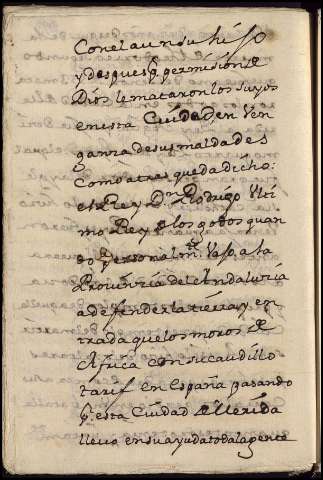 Con el aun su hijo
y despues q̃ permision de
Dios le mataron los suyos
en esta Ciudad en Ven
ganza de sus maldades
como atras queda dicho:
el Rey Dn. Rodrigo Ulti
mo Rey de los godos quan
do personalmte. Vajo, a la
Provinzia del Andaluzia
a defender la tierra y en
trada que los moros de
Africa con su caudillo
tarif en España pasando
pr esta Ciudad de Merida
llevo en su ayuda toda la gente